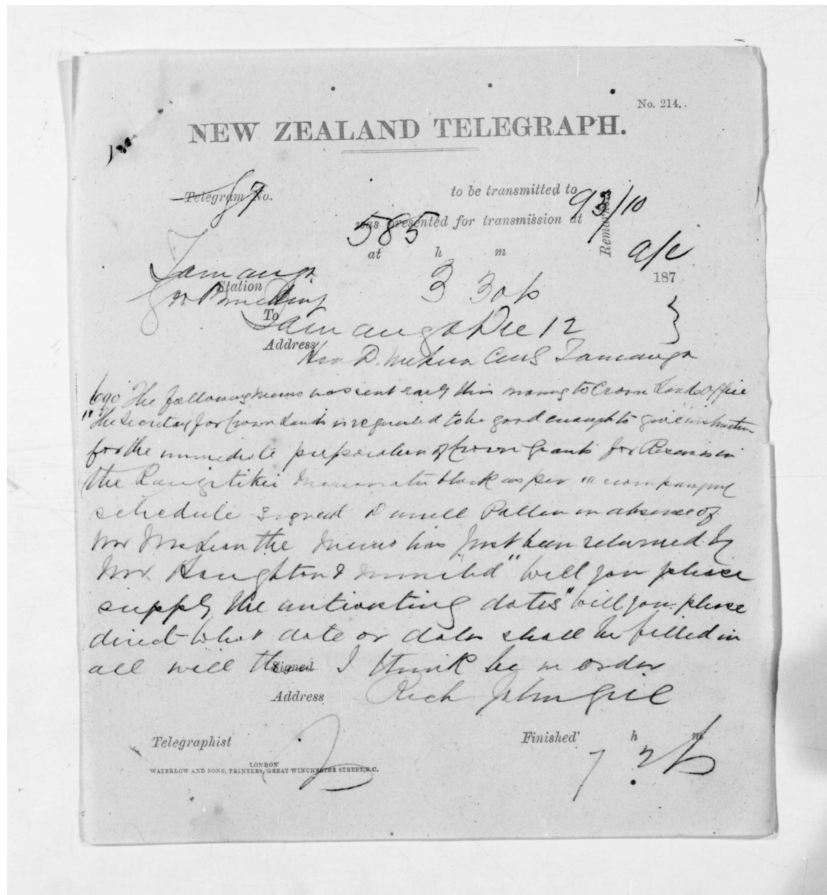 No. 214.
NEW ZEALAND TELEGRAPH.
Telegram No. 97 to be transmitted to 93/10
585 was presented for transmission at Remarks
at h m 187
Station 3 30p
Govt Building
To Dec 12
Address Hon D. McLean Tauranga
The following memo was sent early this morning to Crown Lands Office
"The Secretary for Crown Lands is requested to be good enough to give instruction
for the immediate preparation of Crown Grants for Reserves in
the Rangitikei Manawatu block as per accompanying
schedule signed Daniel Pollen in absence of
Mr McLean the memo has just been returned by
Mr Haughton & minuted "will you please
supply the antivesting dates" will you please
direct what date or dates shall be filled in
all will then I think be in order
Signed
Address Rich John Gill
Telegraphist Finished h m
7 2p
LONDON
WATERLOW AND SONS, PRINTERS, GREAT WINCHESTER STREET, E.C.